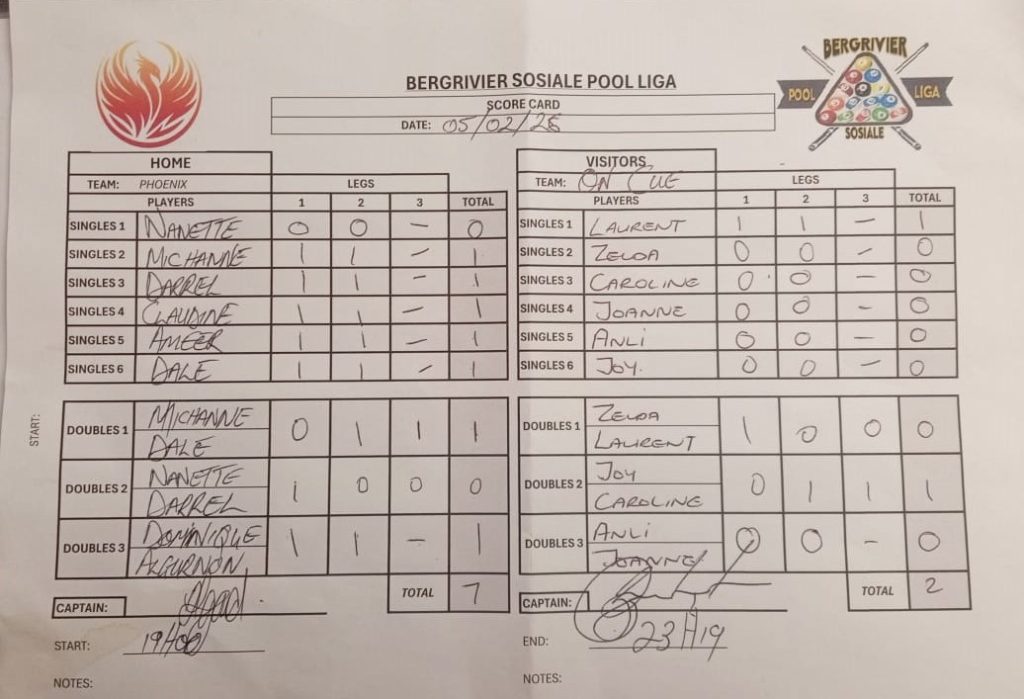 BERGRIVIER
POOL LIGA
SOSIALE
BERGRIVIER SOSIALE POOL LIGA
SCORE CARD
DATE: 05/02/26
HOME
TEAM: PHOENIX LEGS
PLAYERS 1 2 3 TOTAL
SINGLES 1 NANETTE 0 0 - 0
SINGLES 2 MICHANNE 1 1 - 1
SINGLES 3 DARREL 1 1 - 1
SINGLES 4 CLAUDINE 1 1 - 1
SINGLES 5 AMEER 1 1 - 1
SINGLES 6 DALE 1 1 - 1
START:
DOUBLES 1 MICHANNE 0 1 1 1
DALE
DOUBLES 2 NANETTE 1 0 0 0
DARREL
DOUBLES 3 DOMINIQUE 1 1 - 1
ALGURNON
TOTAL 7
CAPTAIN:
START: 19H00
NOTES:
VISITORS
TEAM: ON CUE LEGS
PLAYERS 1 2 3 TOTAL
SINGLES 1 LAURENT 1 1 - 1
SINGLES 2 ZELDA 0 0 - 0
SINGLES 3 CAROLINE 0 0 - 0
SINGLES 4 JOANNE 0 0 - 0
SINGLES 5 ANLI 0 0 - 0
SINGLES 6 JOY. 0 0 - 0
DOUBLES 1 ZELDA 1 0 0 0
LAURENT
DOUBLES 2 JOY 0 1 1 1
CAROLINE
DOUBLES 3 ANLI 0 0 - 0
JOANNE
TOTAL 2
CAPTAIN:
END: 23H19
NOTES: